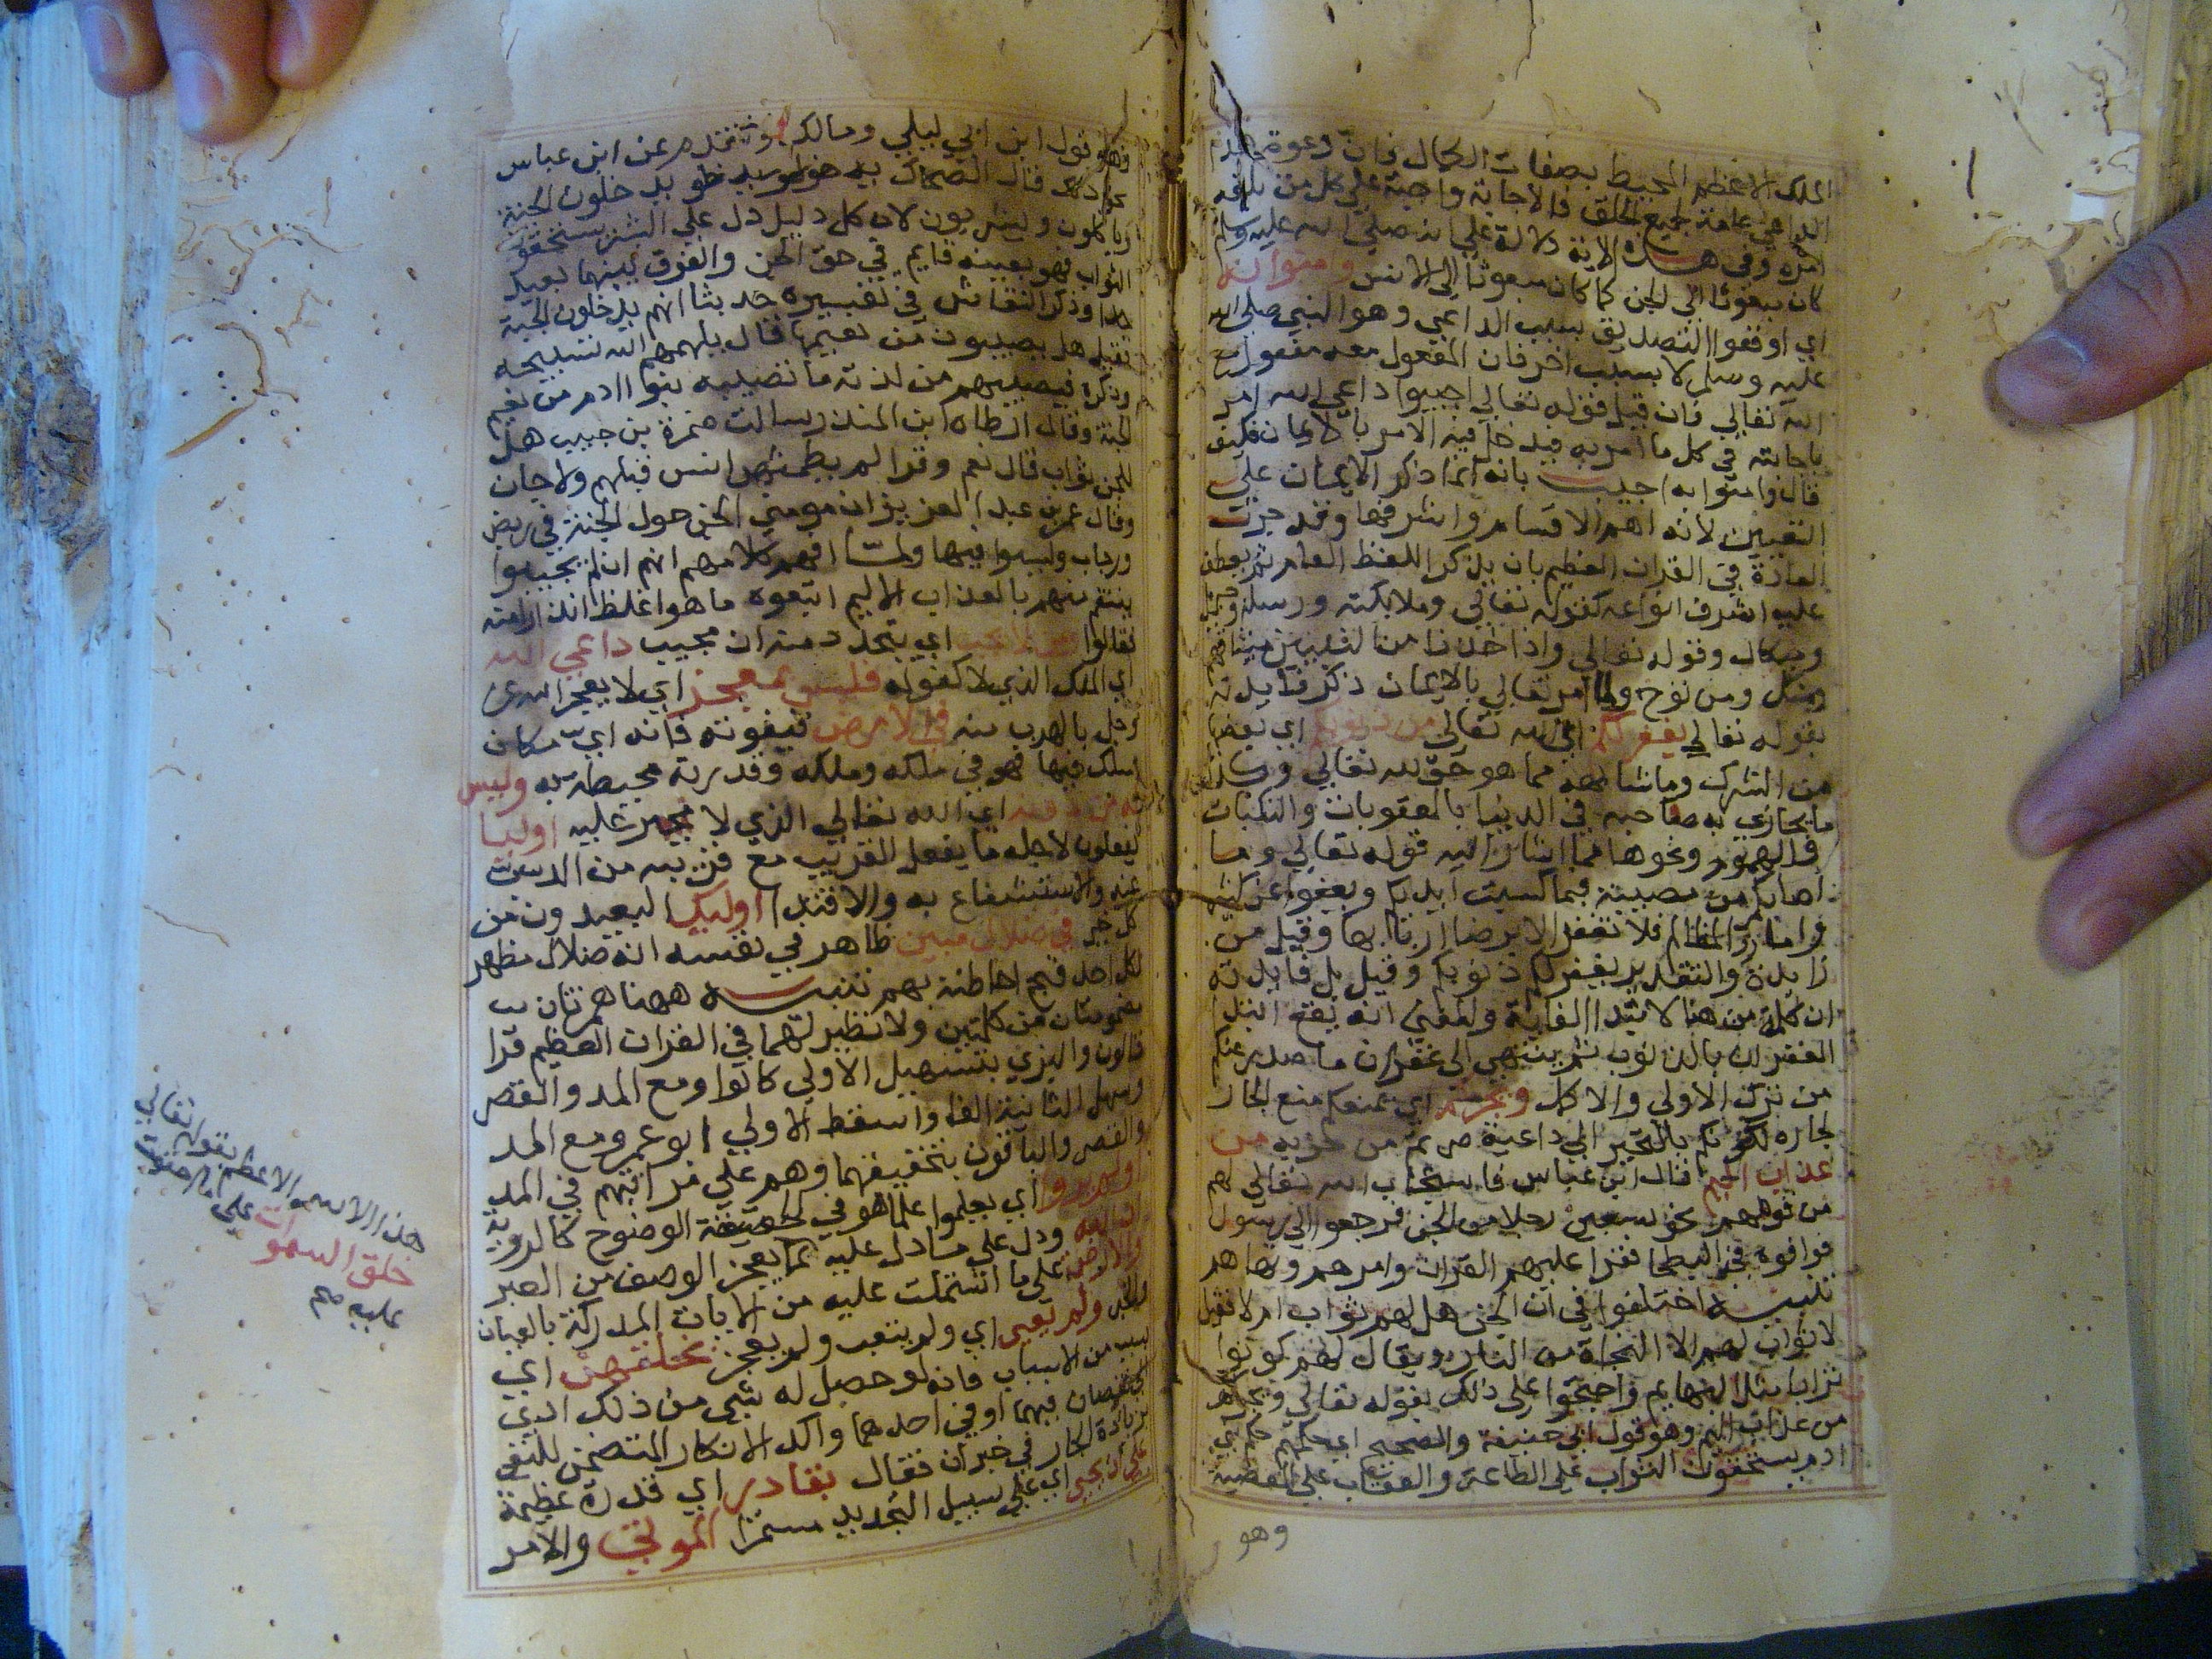 الملك الاعظم المحيط بصفات الكمال فان دعوة هذا
الداعي عامة لجميع الخلق فالاجابة واجبة على كل من بلغه
امره وفي هذه الاية دلالة على انه صلى الله عليه وسلم
كان مبعوثا الى الجن كما كان مبعوثا الى الانس وامنوا به
اي اوقعوا التصديق بسبب الداعي وهو النبي صلى الله
عليه وسلم لا بسبب اخر فان المفعول معه مفعول مع
الله تعالى فان قيل قوله تعالى اجيبوا داعي الله امر
باجابته في كل ما امر به فيدخل فيه الامر بالايمان فكيف
قال وامنوا به اجيب بانه انما ذكر الايمان على
التعيين لانه اهم الاقسام واشرفها وقد جرت
العادة في القران العظيم بان يذكر اللفظ العام ثم يعطف
عليه اشرف انواعه كقوله تعالى وملايكته ورسله وجبريل
وميكال وقوله تعالى واذ اخذنا من النبيين ميثاقهم
ومنك ومن نوح ولما امر تعالى بالايمان ذكر فايدته
بقوله تعالى يغفر لكم اي الله تعالى من ذنوبكم اي بعضها
من الشرك وما شابهه مما هو حق لله تعالى وكذا
ما يجازي به صاحبه في الدنيا بالعقوبات والنكبات
والهموم ونحوها مما اشار اليه قوله تعالى وما
اصابكم من مصيبة فبما كسبت ايديكم ويعفوا عن كثير
واما المظالم فلا تغفر الا برضا اربابها وقيل من
زايدة والتقدير يغفر لكم ذنوبكم وقيل بل فايدته
ان كلمة من هنا لابتدا الغاية والمعنى انه يقع ابتدا
الغفران بالذنوب ثم ينتهي الى غفران ما صدر عنكم
من ترك الاولى والاكمل ويجركم اي يمنعكم منع الجار
لجاره لكونكم بالتحيز الى داعيه صرتم من حزبه من
عذاب اليم قال ابن عباس فاستجاب الله تعالى لهم
من قومهم نحو سبعين رجلا من الجن فرجعوا الى رسول
فوافوه في البطحا فقرا عليهم القران وامرهم ونهاهم
تنبيه اختلفوا في ان الجن هل لهم ثواب ام لا فقيل
لا ثواب لهم الا النجاة من النار ويقال لهم كونوا
ترابا مثل البهايم واحتجوا على ذلك بقوله تعالى ويجركم
من عذاب اليم وهو قول ابي حنيفة والصحيح ان حكمهم حكم بني
ادم يستحقون الثواب على الطاعة والعقاب على المعصية
وهو
وهو قول ابن ابي ليلى ومالك وتقدم عن ابن عباس
نحو ذلك قال الضحاك يدخلون الجنة
وياكلون ويشربون لان كل دليل دل على البشر يستحقو
الثواب فهو بعينه قايم في حق الجن والفرق بينهما بعيد
جدا وذكر النقاش في تفسيره حديثا انهم يدخلون الجنة
فقيل هل يصيبون من نعيمها قال يلهمهم الله تسبيحه
وذكره فيصيبهم من لذته ما تصيبه بنوا ادم من نعيم
الجنة وقال ارطاه ابن المنذر سالت ضمرة بن حبيب هل
للجن ثواب قال نعم وقرا لم يطمثهن انس قبلهم ولا جان
وقال عمر بن عبد العزيز ان مومني الجن حول الجنة في ربض
ورحاب وليسوا فيها ولما افهم كلامهم انهم ان لم يجيبوا
ينتقم منهم بالعذاب الاليم اتبعوه ما هو اغلظ انذارا منه
فقالوا ومن لا يجب اي يتجدد منه ان يجيب داعي الله
اي الملك الذي لا كفو له فليس بمعجز اي لا يعجز الله عز
وجل بالهرب منه في الارض فيفوته فانه اي مكان
سلك فيها فهو في ملكه وملكه وقدرته محيطة به وليس
له من دونه اي الله تعالى الذي لا يجير عليه اوليا
يفعلون لاجله ما يفعل القريب مع قريبه من الذب
عنه والاستشفاع به والافتدا اوليك البعيدون من
كل خير في ضلال مبين ظاهر في نفسه انه ضلال مظهر
لكل احد قبح احاطته بهم تنبيه ههنا همزتان
مضمومتان من كلمتين ولا نظير لهما في القران العظيم قرا
قالون والبزي بتسهيل الاولى كالواو مع المد والقصر
وسهل الثانية الفا واسقط الاولى ابو عمرو مع المد
والقصر والباقون بتحقيقهما وهم على مراتبهم في المد
اولم يروا اي يعلموا علما هو في الحقيقة الوضوح كالروية
ان الله ودل على ما دل عليه بما يعجز الوصف من العبر
والارض على ما اشتملت عليه من الايات المدركة بالعيان
ولم يعي اي ولم يتعب ولم يعجز بخلقهن اي
بسبب من الاسباب فانه لو حصل له شي من ذلك ادى
الى نقصان فيهما او في احدهما واكد الانكار المتضمن للنفي
بزيادة الجار في خبر ان فقال بقادر اي قدرة عظيمة
على ان يحيي اي على سبيل التجديد مستمرا الموتى والامر
هذا الاسم الاعظم بقوله تعالى
خلق السموات على
عليه صح